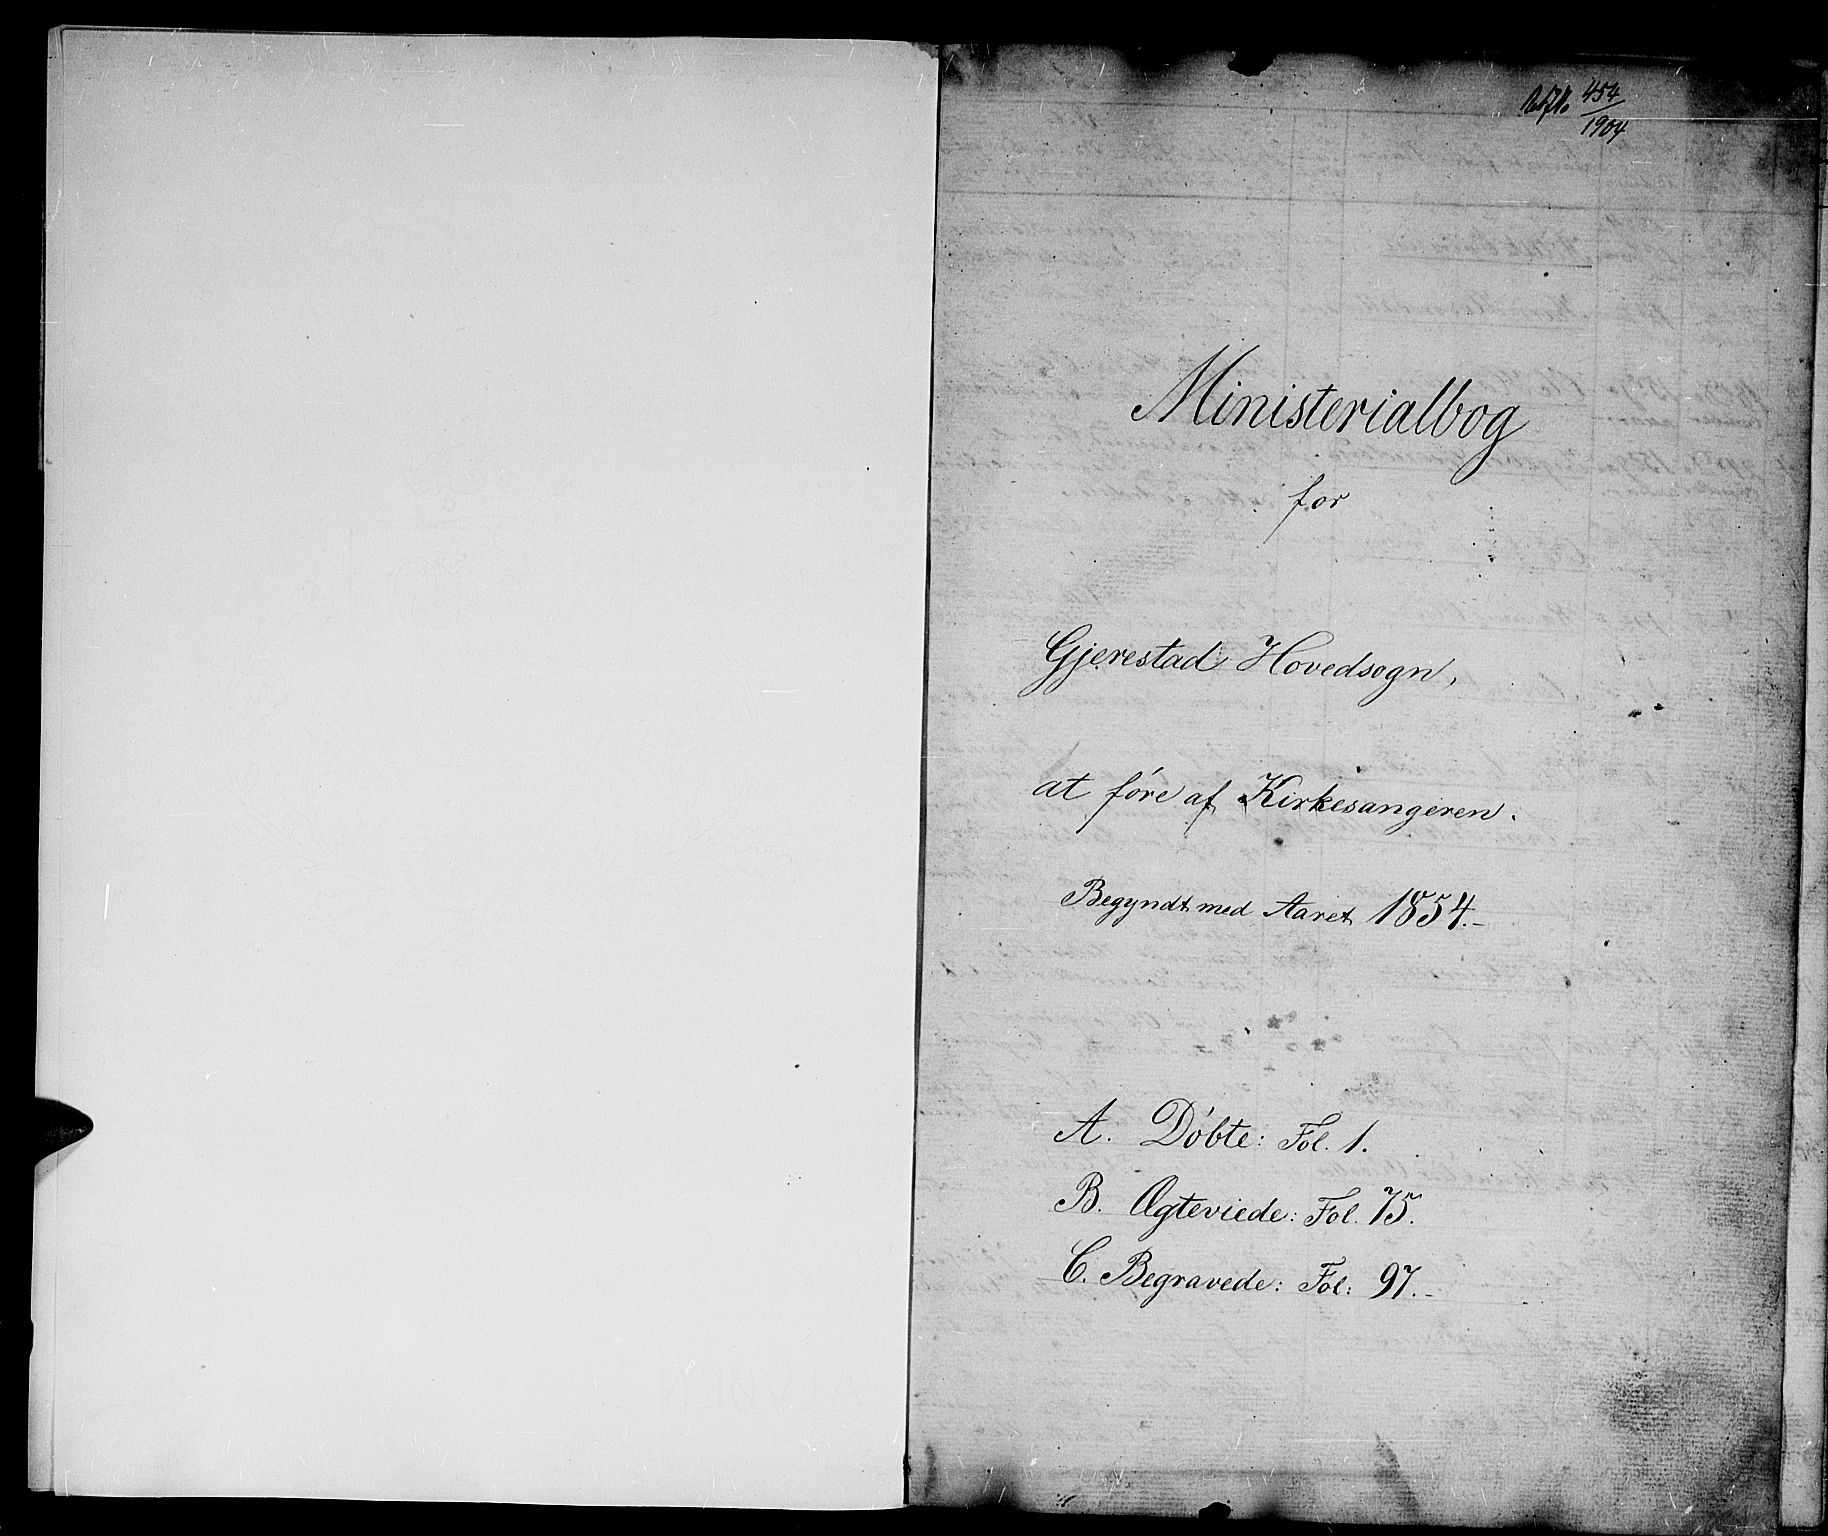 454
1904
Ministerialbog
for
Gjerestad Hovedsogn,
at føre af Kirkesangeren.
Begyndt med Aaret 1854.-
A. Døbte: Fol. 1.
B. Ægteviede: Fol. 75.
C. Begravede: Fol: 97.-